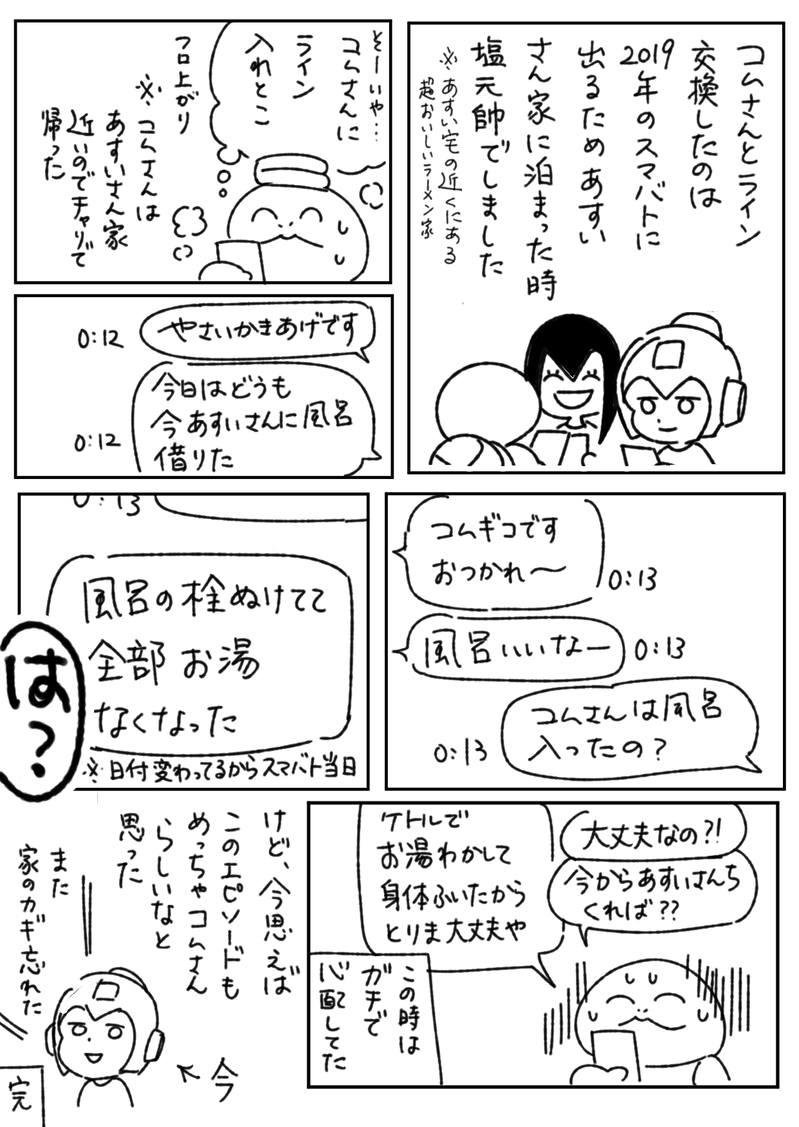 コムさんとライン
交換したのは
2019年のスマバトに
出るためあすい
さん家に泊まった時
塩元帥でしました
※あすい宅の近くにある
超おいしいラーメン家
そーいや…
コムさんに
ライン
入れとこ
フロ上がり
※コムさんは
あすいさん家
近いのでチャリで
帰った
やさいかきあげです
0:12
今日はどうも
今あすいさんに風呂
借りた
0:12
コムギコです
おつかれ〜
0:13
風呂いいなー
0:13
コムさんは風呂
入ったの?
0:13
0:13
風呂の栓ぬけてて
全部お湯
なくなった
は?
※日付変わってるからスマバト当日
大丈夫なの?!
今からあすいさんち
くれば??
ケトルで
お湯わかして
身体ふいたから
とりま大丈夫や
この時は
ガチで
心配してた
けど、今思えば
このエピソードも
めっちゃコムさん
らしいなと
思った
また
家のカギ忘れた
今
完